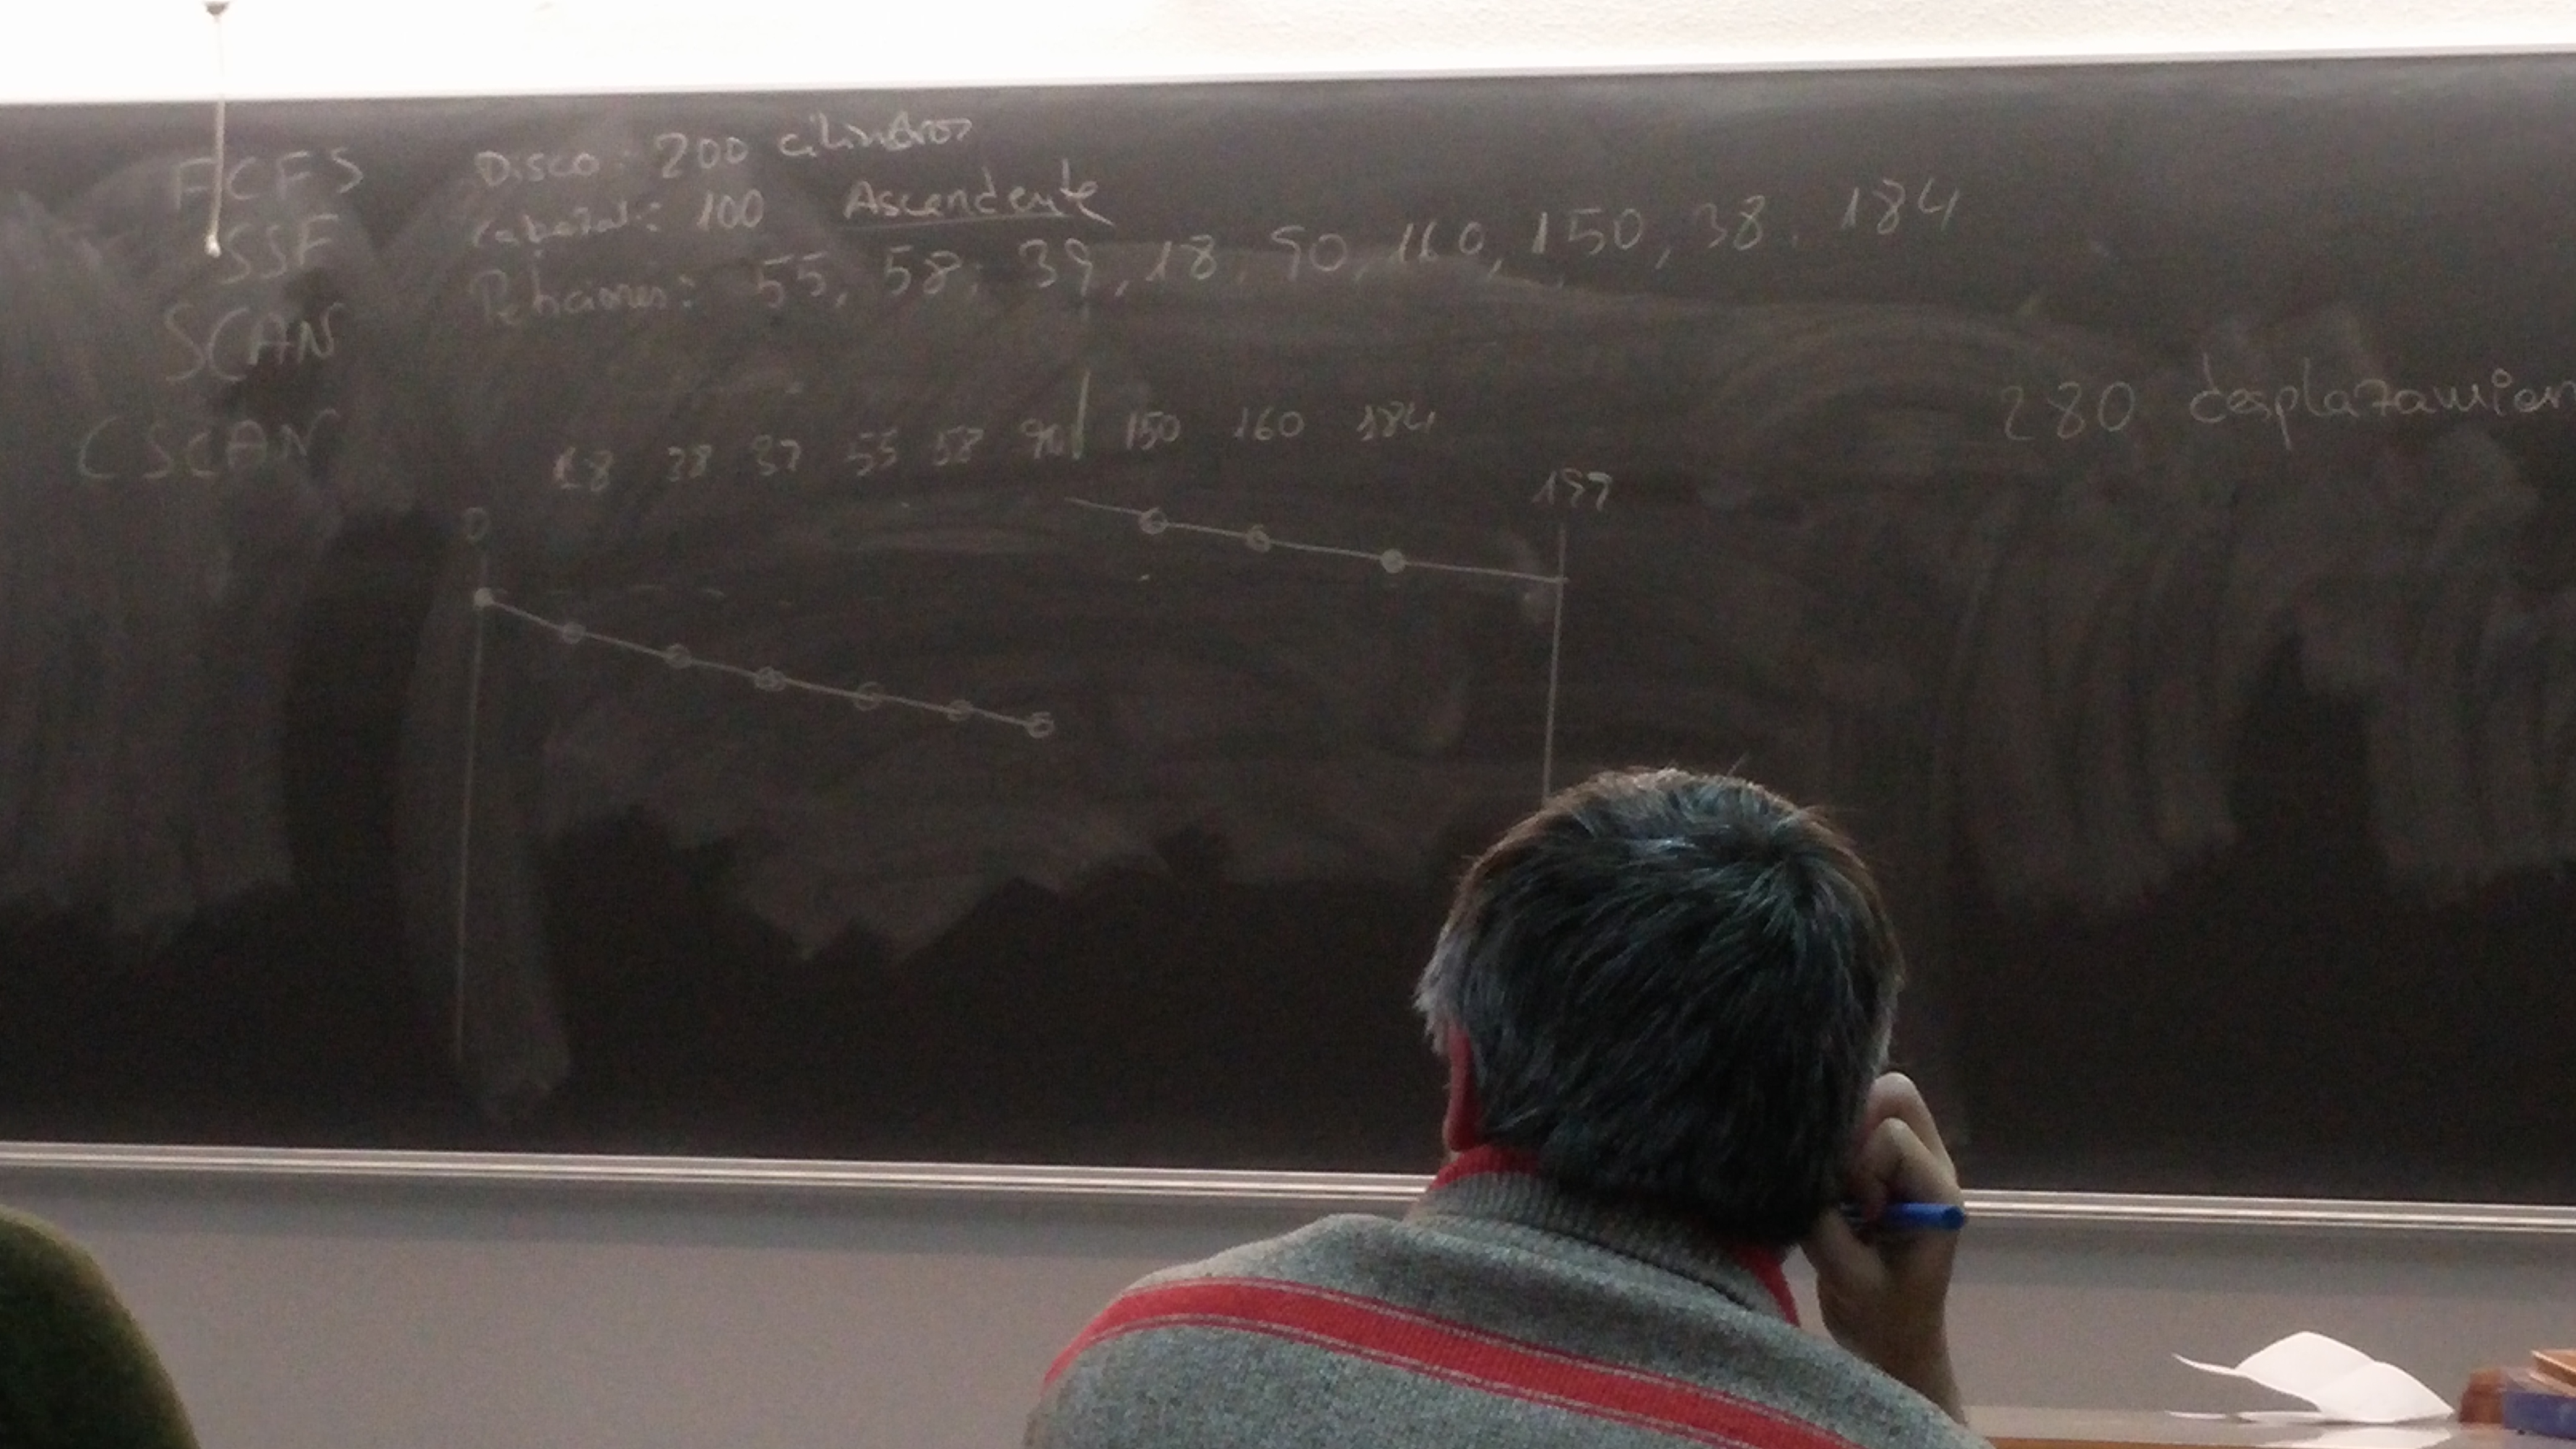 FCFS
SSF
SCAN
CSCAN
Disco: 200 cilindros
Cabezal: 100 Ascendente
Peticiones: 55, 58, 39, 18, 90, 160, 150, 38, 184
18 38 39 55 58 90 150 160 184
0 199
280 desplazamien